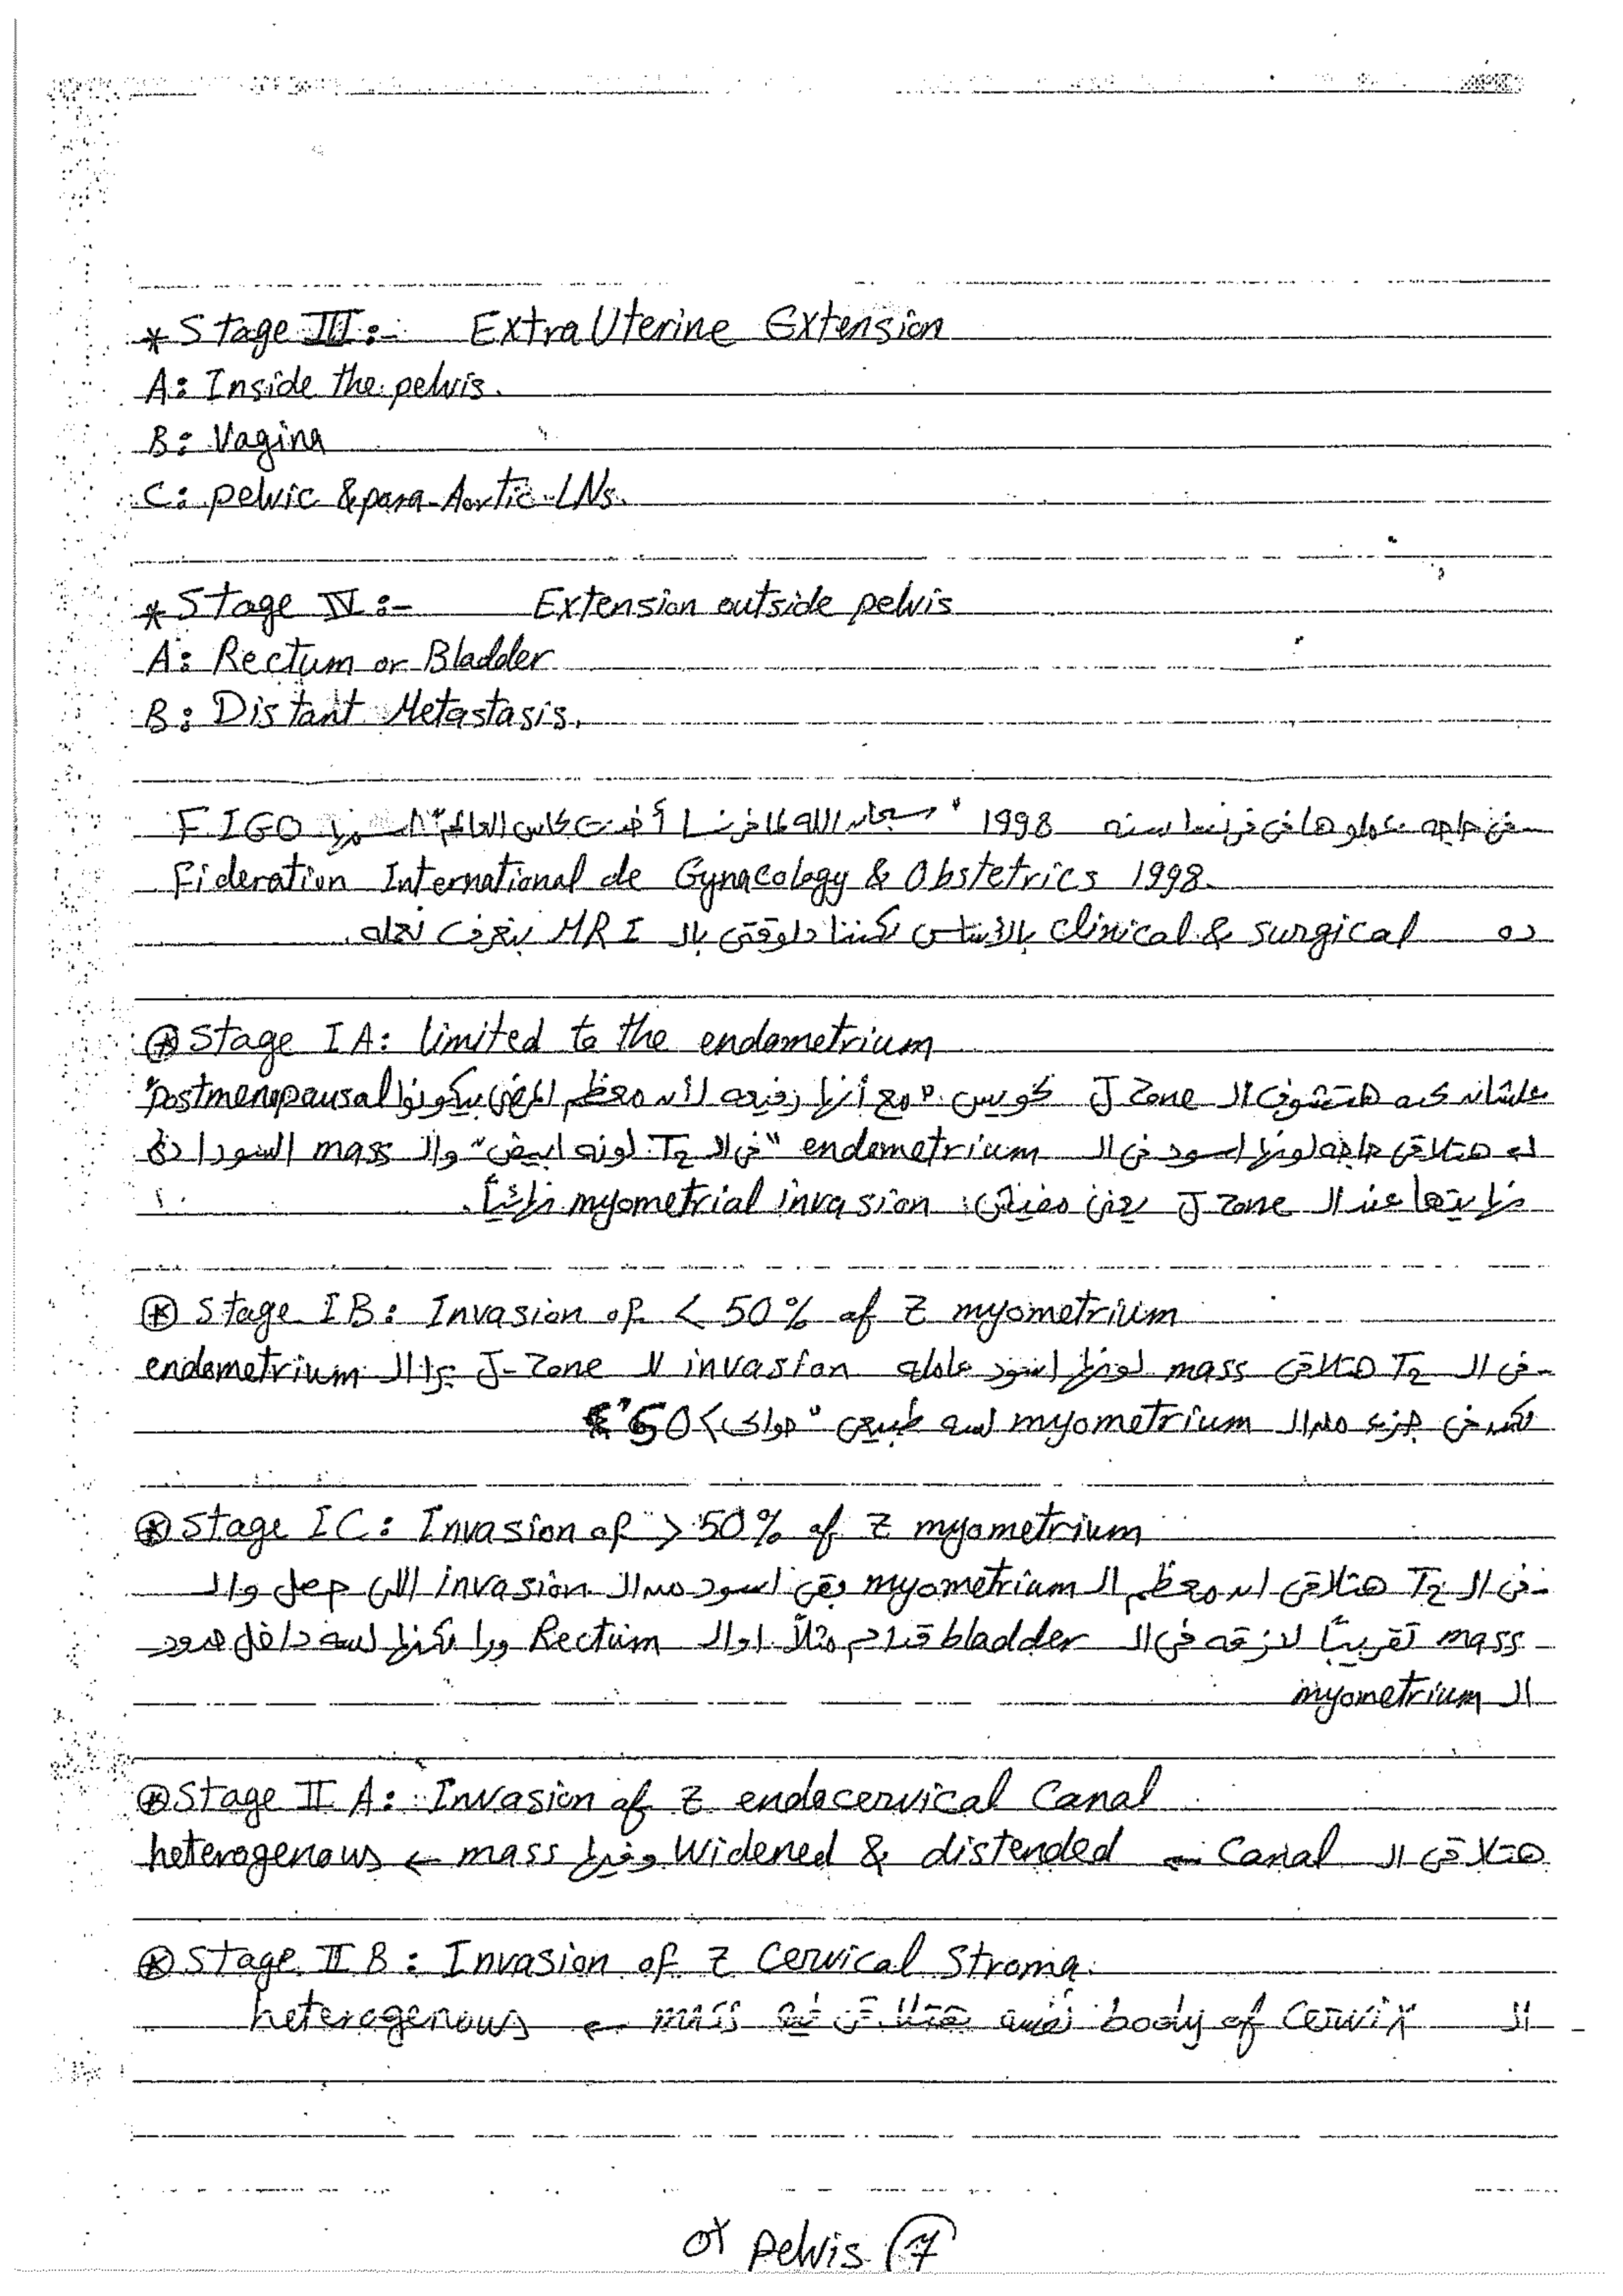 * Stage III:- Extra Uterine Extension
A: Inside the pelvis.
B: Vagina
C: pelvic & para-Aortic LNs.
* Stage IV:- Extension outside pelvis
A: Rectum or Bladder
B: Distant Metastasis.
في حاجه عملوها في فرنسا سنه 1998 "سبحان الله لما فرنسا أخدت كاس العالم" اسمها FIGO
Fideration International de Gynacology & Obstetrics 1998.
ده clinical & surgical بالأساس لكننا دلوقتى بالـ MRI بنعرف نعمله.
⊛ Stage IA: limited to the endometrium
علشان كده هتشوف الـ J Zone كويس "مع أنها رفيعه لأن معظم المرضى بيكونوا postmenopausal"
هتلاقى حاجه لونها اسود فى الـ endometrium "فى الـ T2 لونه ابيض" والـ mass السودا دى
نهايتها عند الـ J Zone يعنى مفيش myometrial invasion نهائياً.
⊛ Stage IB: Invasion of < 50% of Z myometrium
فى الـ T2 هتلاقى mass لونها اسود عامله invasion للـ J-Zone برا الـ endometrium
لكن فى جزء من الـ myometrium لسه طبيعى "حوالى > 50%"
⊛ Stage IC: Invasion of > 50% of Z myometrium
فى الـ T2 هتلاقى ان معظم الـ myometrium بقى اسود من الـ invasion اللى حصل والـ
mass تقريباً لازقه فى الـ bladder قدام مثلاً او الـ Rectum ورا لكنها لسه داخل حدود
الـ myometrium
⊛ Stage II A: Invasion of Z endocervical Canal
هتلاقى الـ Canal ← Widened & distended وفيها mass ← heterogenous
⊛ Stage II B: Invasion of Z Cervical Stroma.
الـ body of Cervix نفسه هتلاقى فيه mass ← heterogenous
pelvis 7